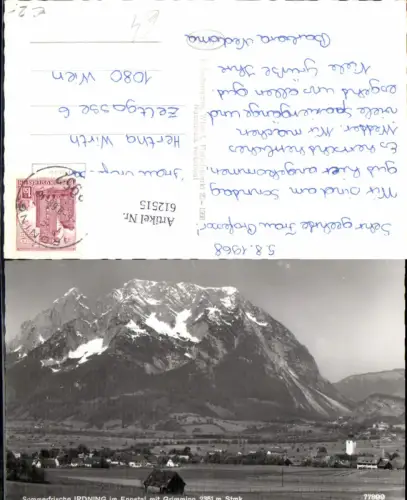 5.8.1968
Sehr geehrte Frau Professor!
Wir sind am Sonntag
gut hier angekommen.
Es herrscht herrliches
Wetter. Wir machen
viele Spaziergänge und
es geht uns allen gut.
Viele Grüße Ihre
Barbara
Frau
Hertha Wirth
Zeltgasse 6
1080 Wien
Artikel Nr.
612515
Sommerfrische IRDNING im Ennstal mit Grimming 2351 m Stmk.
77800